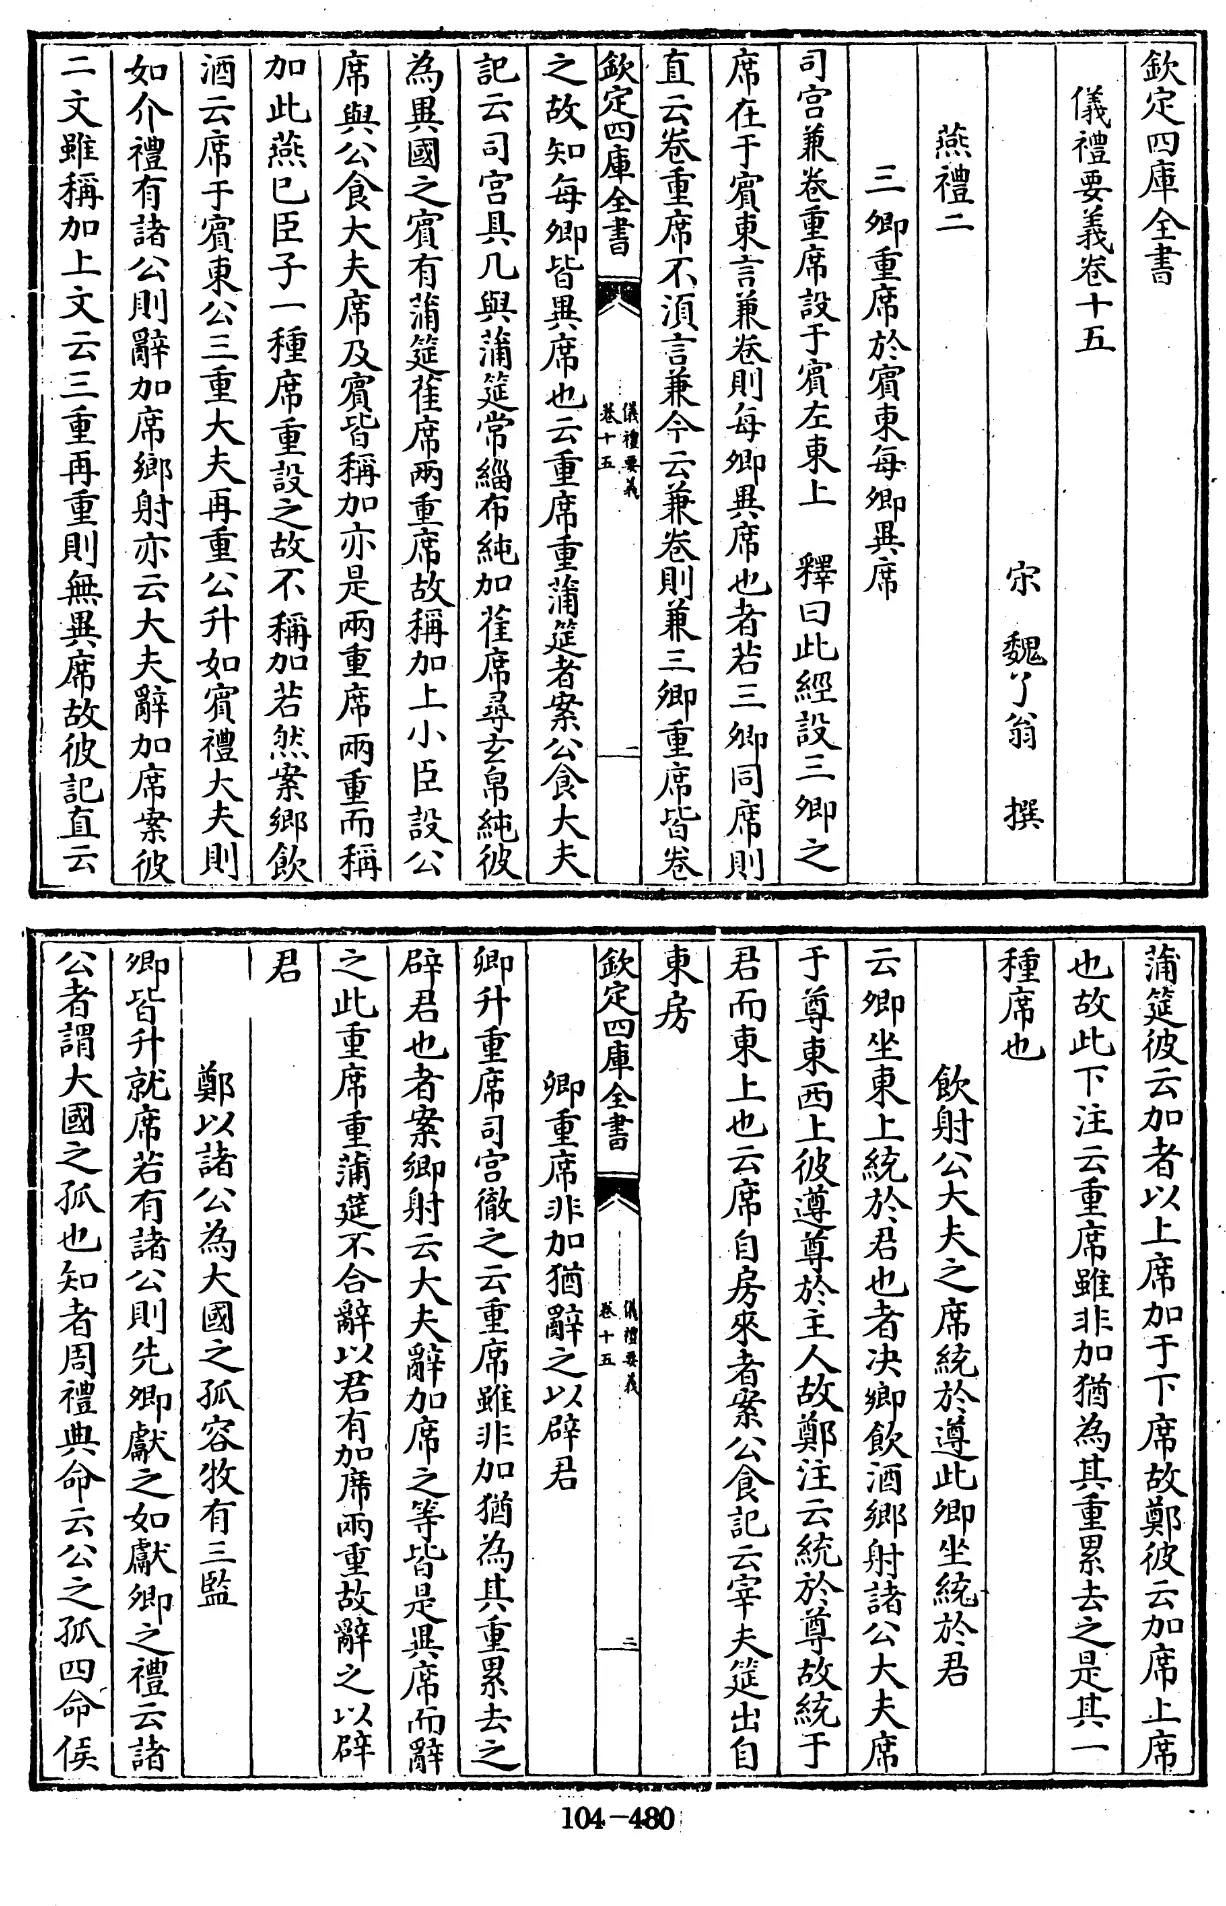 欽定四庫全書
儀禮要義卷十五
宋 魏了翁 撰
燕禮二
三卿重席於賓東每卿異席
司宮兼卷重席設于賓左東上 釋曰此經設三卿之
席在于賓東言兼卷則每卿異席也者若三卿同席則
直云卷重席不須言兼今云兼卷則兼三卿重席皆卷
欽定四庫全書
儀禮要義
卷十五
二
之故知每卿皆異席也云重席重蒲筵者案公食大夫
記云司宮具几與蒲筵常緇布純加萑席尋玄帛純彼
為異國之賓有蒲筵萑席兩重席故稱加上小臣設公
席與公食大夫席及賓皆稱加亦是兩重席兩重而稱
加此燕已臣子一種席重設之故不稱加若然案鄉飲
酒云席于賓東公三重大夫再重公升如賓禮大夫則
如介禮有諸公則辭加席鄉射亦云大夫辭加席案彼
二文雖稱加上文云三重再重則無異席故彼記直云
蒲筵彼云加者以上席加于下席故鄭彼云加席上席
也故此下注云重席雖非加猶為其重累去之是其一
種席也
飲射公大夫之席統於遵此卿坐統於君
云卿坐東上統於君也者決鄉飲酒鄉射諸公大夫席
于尊東西上彼遵尊於主人故鄭注云統於尊故統于
君而東上也云席自房來者案公食記云宰夫筵出自
東房
欽定四庫全書
儀禮要義
卷十五
三
卿重席非加猶辭之以辟君
卿升重席司宮徹之云重席雖非加猶為其重累去之
辟君也者案鄉射云大夫辭加席之等皆是異席而辭
之此重席重蒲筵不合辭以君有加席兩重故辭之以辟
君
鄭以諸公為大國之孤容牧有三監
卿皆升就席若有諸公則先卿獻之如獻卿之禮云諸
公者謂大國之孤也知者周禮典命云公之孤四命侯
104-480